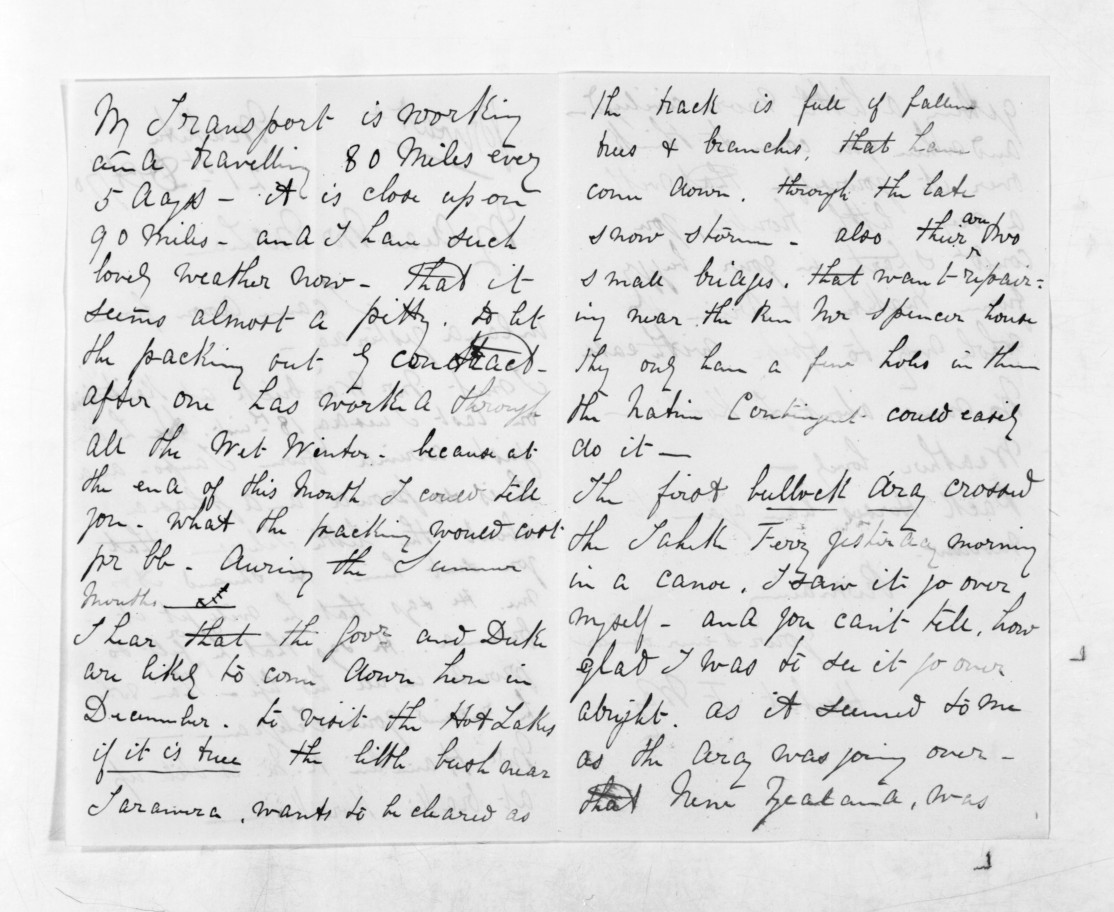 My Transport is working
and travelling 80 Miles every
5 days - it is close up on
90 Miles - and I have such
lovely weather now - that it
seems almost a pitty. to let
the packing out by contract -
after one has worked through
all the Wet Winter - because at
the end of this Month I could tell
you - what the packing would cost
pr lb - during the Summer
Months
I hear that the Govr. and Duke
are likely to come down here in
December. to visit the Hot Lakes
if it is true the little bush near
Tarawera, wants to be cleared as
The track is full of fallen
trees & branches, that have
come down. through the late
snow storm - also their are two
small bridges, that want repair=
ing near the Run Mr Spencer house
They only have a few holes in them
the Native Contingent could easily
do it -
The first bullock dray crossed
the Taheke Ferry yesterday morning
in a canoe, I saw it go over
myself - and you can't tell, how
glad I was to see it go over
alright. as it seemed to me
as the dray was going over -
that New Zealand, was